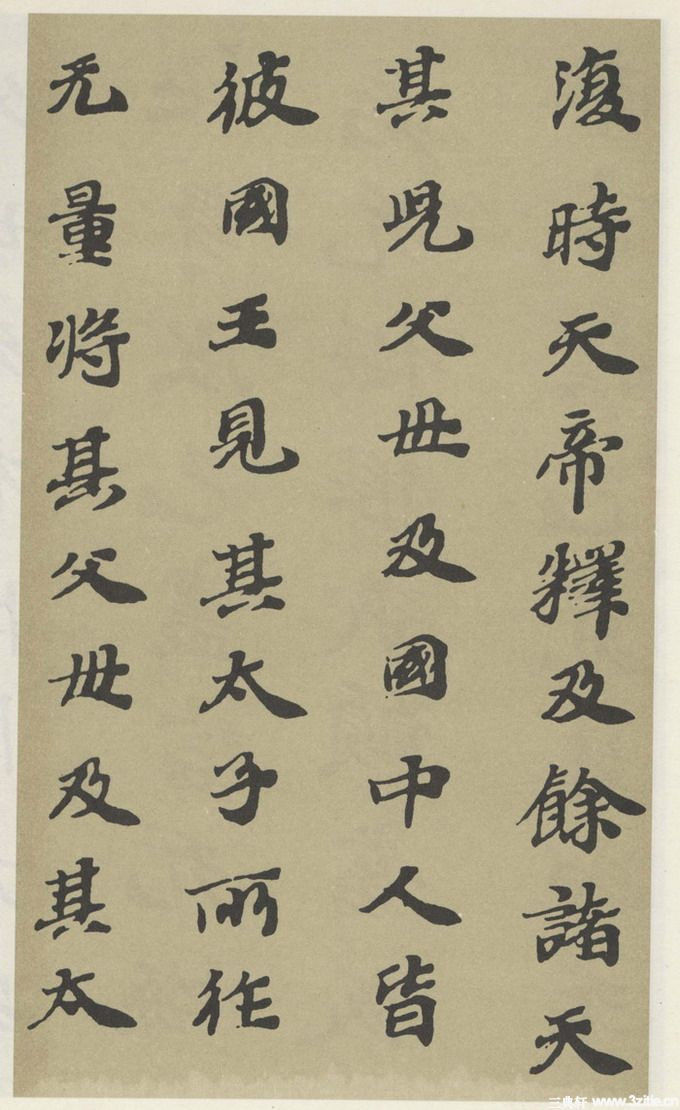 復時天帝釋及餘諸天
其兒父母及國中人皆
彼國王見其太子所作
无量將其父母及其太
三典轩 www.3zitie.cn